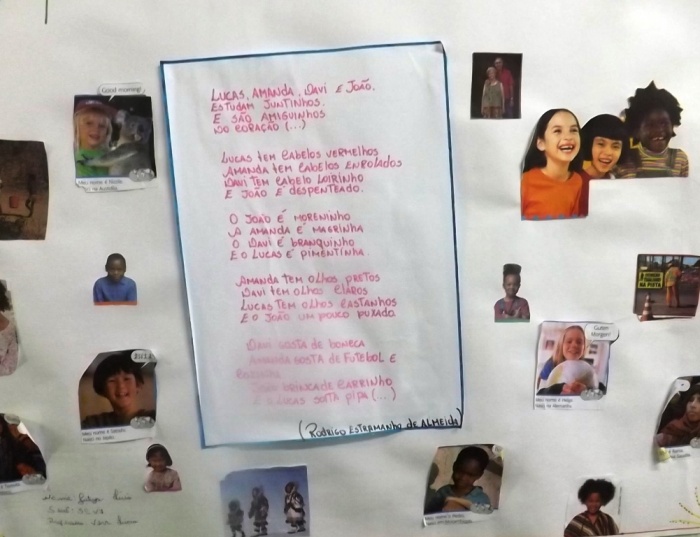 LUCAS, AMANDA, DAVI E JOÃO.
ESTUDAM JUNTINHOS.
E SÃO AMIGUINHOS
DO CORAÇÃO (...)
LUCAS TEM CABELOS VERMELHOS
AMANDA TEM CABELOS ENROLADOS
DAVI TEM CABELO LOIRINHO
E JOÃO É DESPENTEADO.
O JOÃO É MORENINHO
A AMANDA É MAGRINHA
O DAVI É BRANQUINHO
E O LUCAS É PIMENTINHA.
AMANDA TEM OLHOS PRETOS
DAVI TEM OLHOS CLAROS
LUCAS TEM OLHOS CASTANHOS
E O JOÃO UM POUCO PUXADO.
DAVI GOSTA DE BONECA
AMANDA GOSTA DE FUTEBOL E
JOÃO BRINCA DE CARRINHO
E O LUCAS SOLTA PIPA (...)
(RODRIGO ESTRAMANHO DE ALMEIDA)
Good morning!
Guten Morgen!
NA PISTA